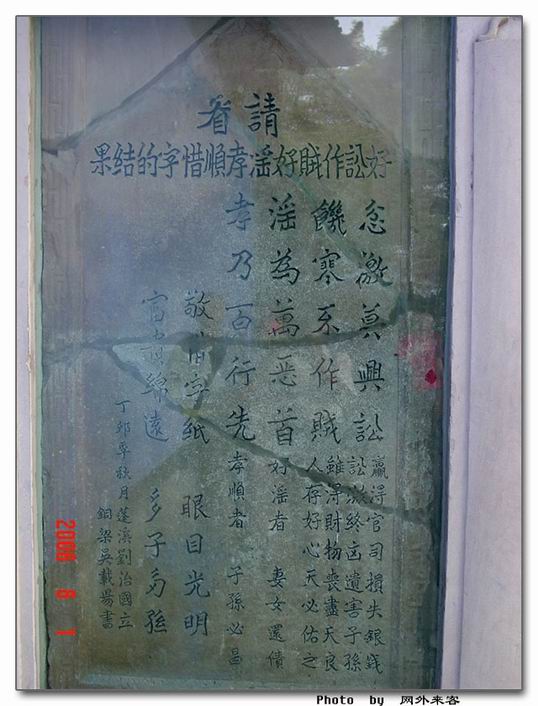 請看
好訟作賊好滛孝順惜字的结果
忿激莫興訟
贏得官司損失銀錢
訟則終凶遺害子孫
饑寒不作賊
雖得財物喪盡天良
人存好心天必佑之
滛為萬惡首 好滛者 妻女還債
孝乃百行先 孝順者 子孫必昌
敬惜字紙 眼目光明
富貴綿遠 多子多孫
丁卯季秋月蓬溪劉治國立
銅梁吳載揚書
8 1
Photo by 网外来客